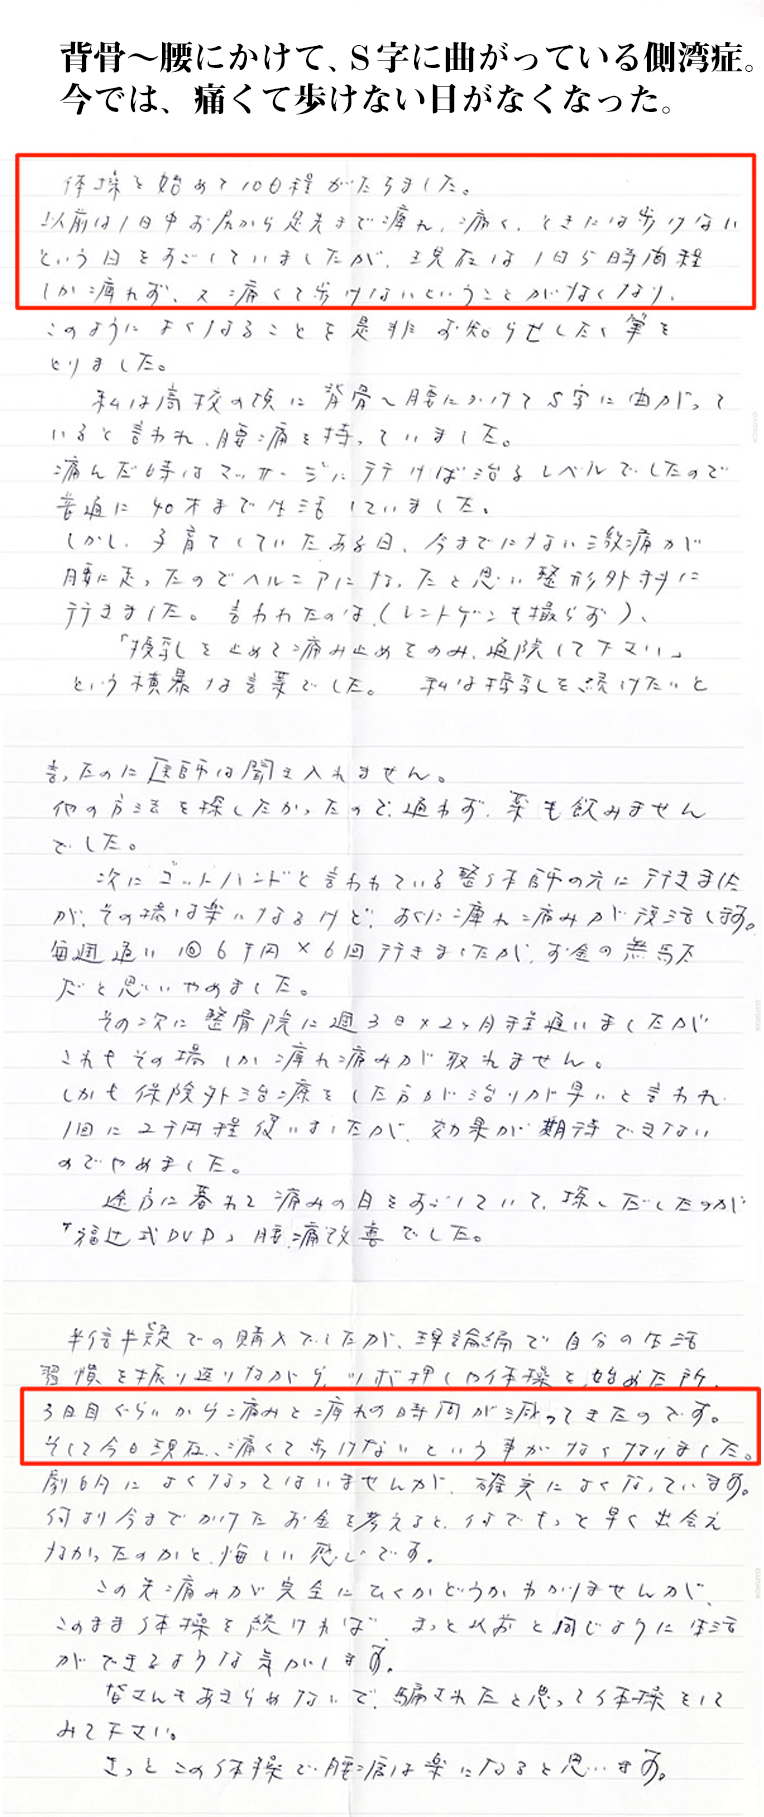 背骨～腰にかけて、S字に曲がっている側湾症。
今では、痛くて歩けない日がなくなった。
体操を始めて10日程がたちました。
以前は1日中お尻から足先まで痺れ、痛く、ときには歩けない
という日をすごしていましたが、現在は1日5時間程
しか痺れず、又痛くて歩けないということがなくなり、
このようによくなることを是非お知らせしたく筆を
とりました。
私は高校の頃に背骨～腰にかけてS字に曲がって
いると言われ、腰痛を持っていました。
痛んだ時はマッサージに行けば治るレベルでしたので
普通に40才まで生活していました。
しかし、子育てしていたある日、今までにない激痛が
腰に走ったのでヘルニアになったと思い整形外科に
行きました。言われたのは、(レントゲンも撮らず)、
「授乳を止めて痛み止めをのみ、通院して下さい」
という横暴な言葉でした。 私は授乳を続けたいと
言ったのに医師は聞き入れません。
他の方法を探したかったので、通わず、薬も飲みません
でした。
次にゴットハンドと言われている整体師の元に行きました
が、その場は楽になるけど、すぐに痺れ痛みが復活します。
毎週通い1回6千円×6回行きましたが、お金の無駄
だと思いやめました。
その次に整骨院に週3日×2ヶ月程通いましたが
これもその場しか痺れ痛みが取れません。
しかも保険外治療をした方が治りが早いと言われ
1回に2千円程使いましたが、効果が期待できない
のでやめました。
途方に暮れて痛みの日をすごしていて、探しだしたのが
「福辻式DVD」腰痛改善でした。
半信半疑での購入でしたが、理論編で自分の生活
習慣を振り返りながら、ツボ押しや体操を始めた所、
3日目ぐらいから痛みと痺れの時間が減ってきたのです。
そして今日現在、痛くて歩けないという事がなくなりました。
劇的によくなってはいませんが、確実によくなっています。
何より今までかけたお金を考えると、なぜもっと早く出会え
なかったのかと、悔しい感じです。
この先痛みが完全にひくかどうかわかりませんが、
このまま体操を続ければ、きっと以前と同じように生活
ができるような気がします。
皆さんもあきらめないで、騙されたと思って体操をして
みて下さい。
きっとこの体操で腰痛は楽になると思います。